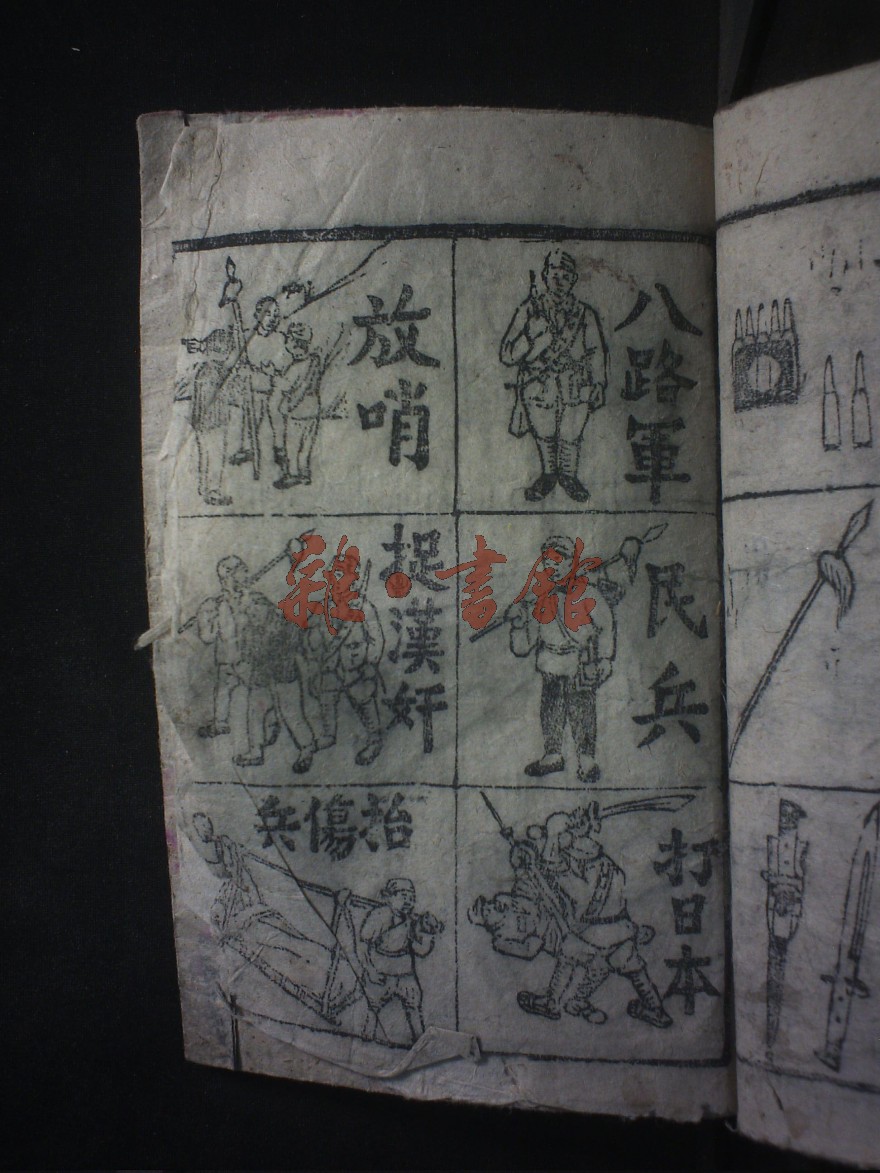 八路軍
民兵
打日本
放哨
捉漢奸
抬傷兵
雜·書館